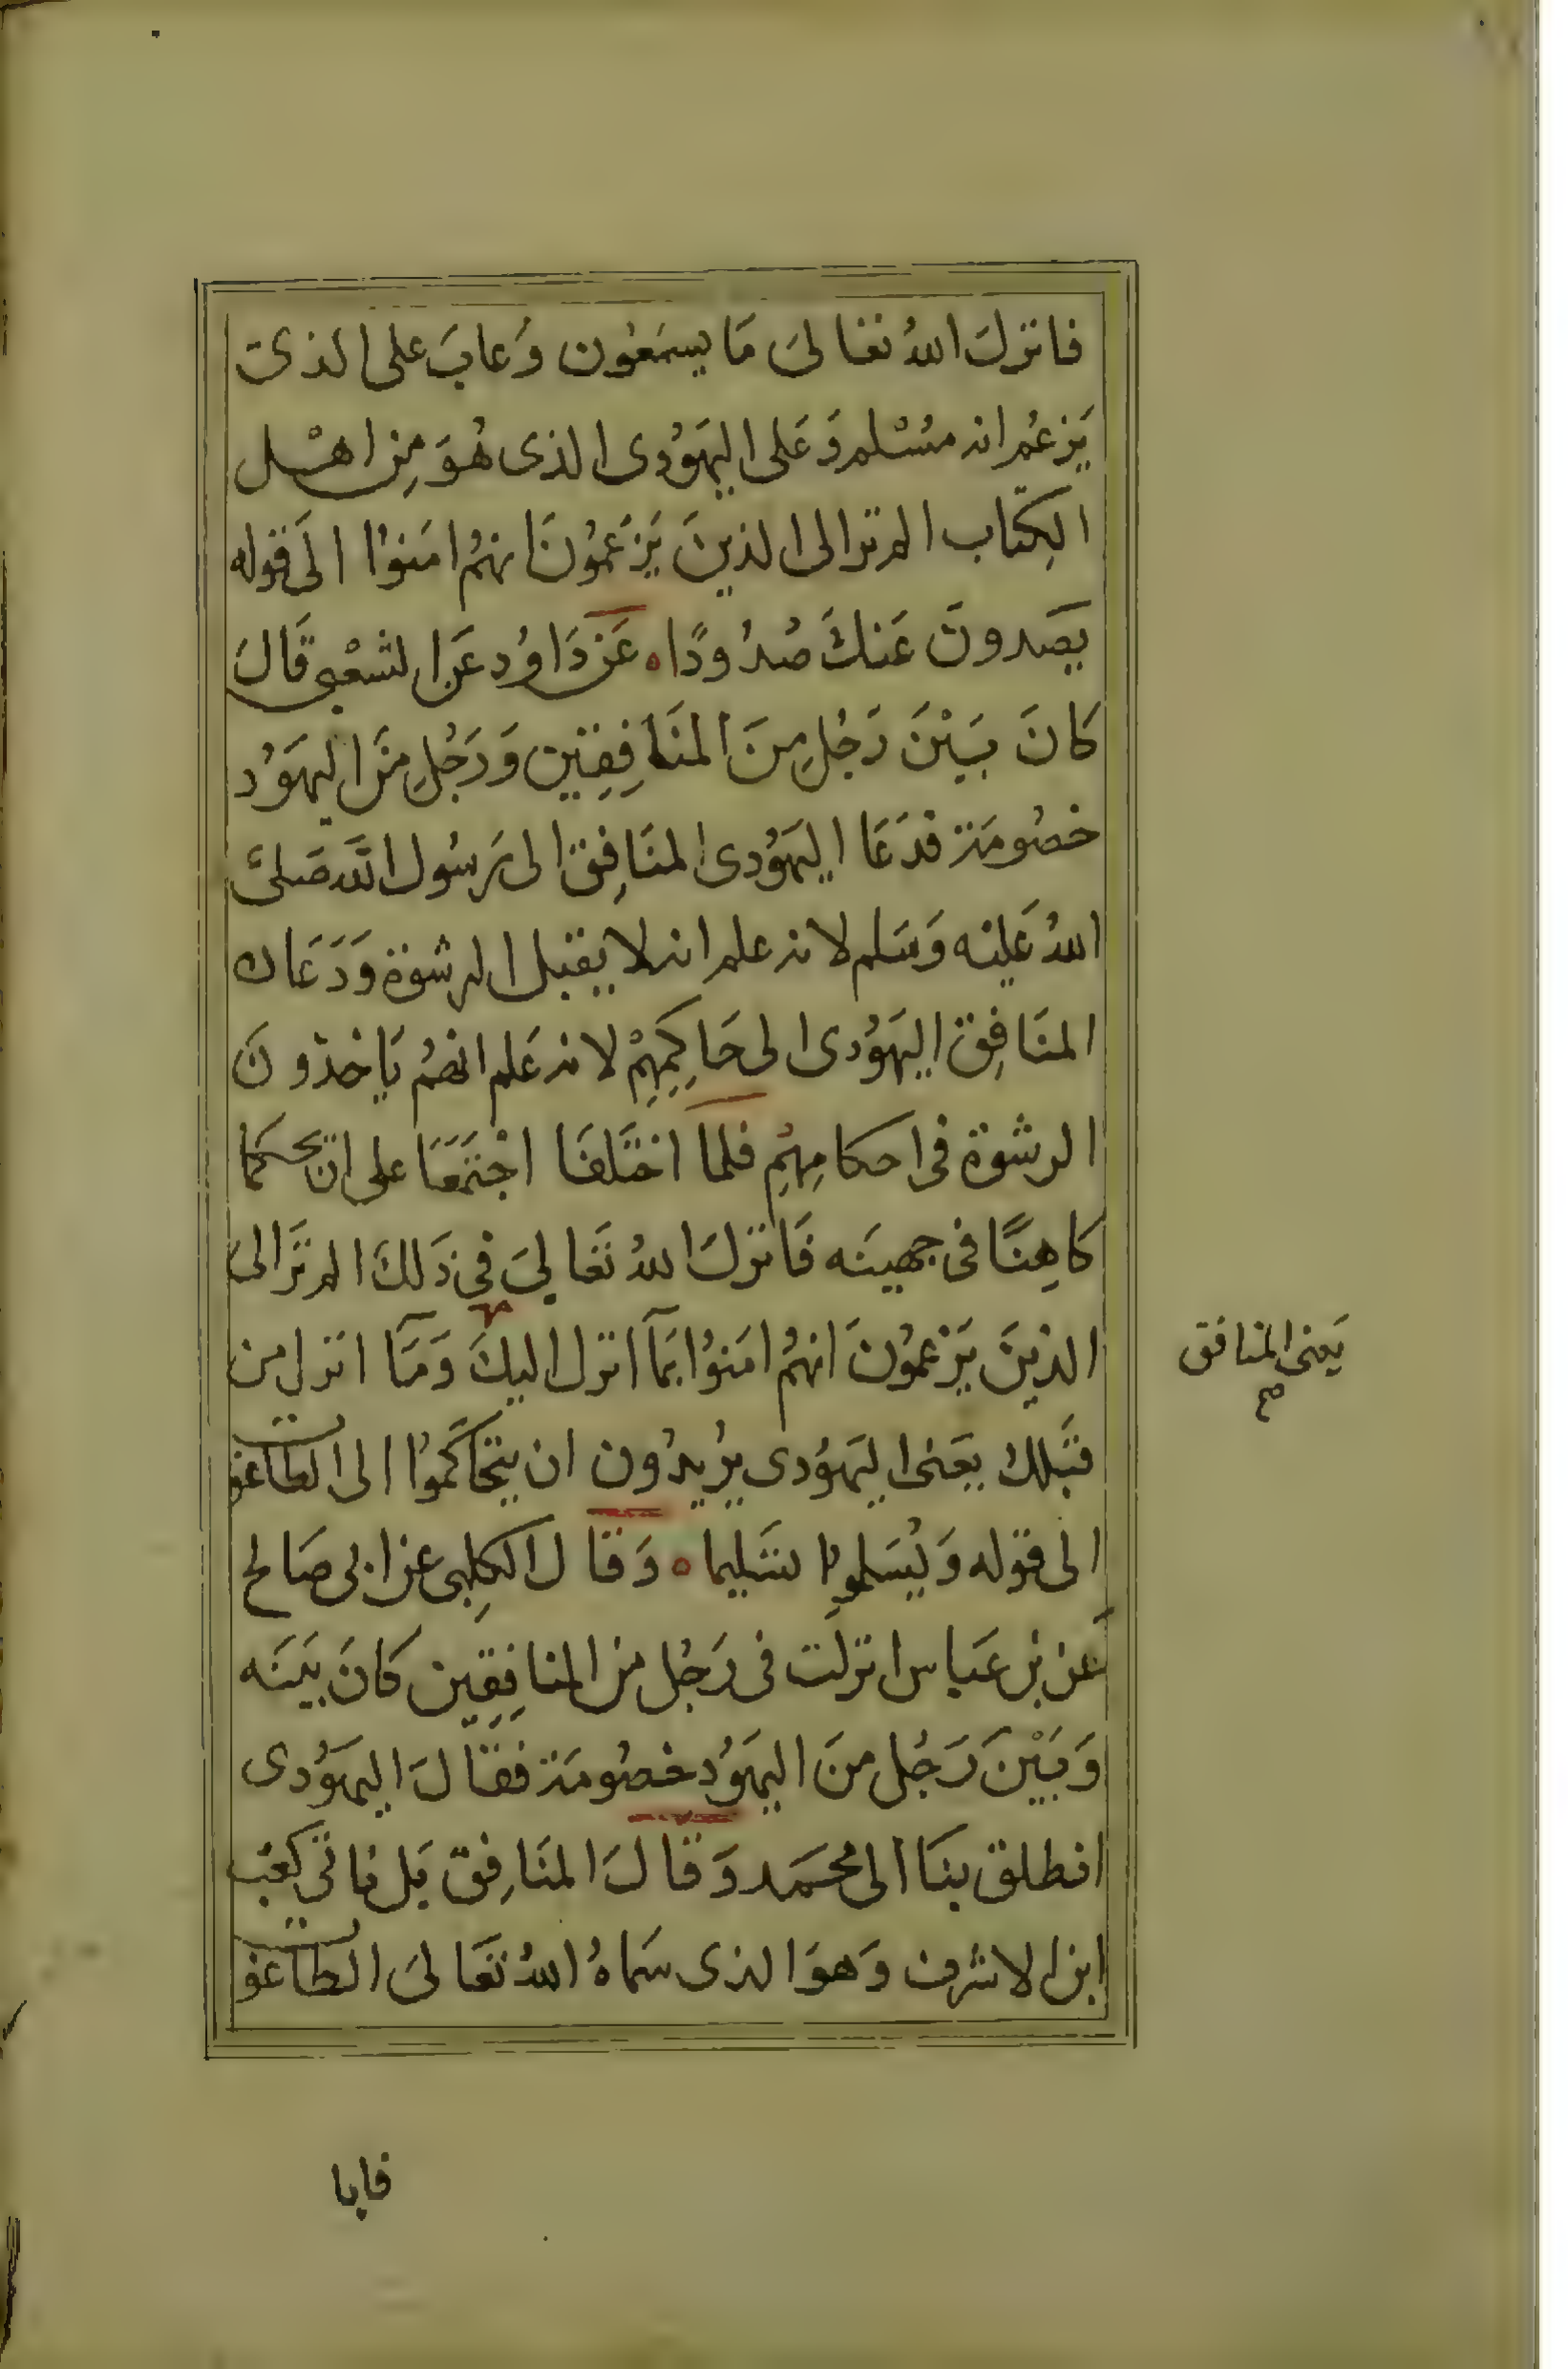 فانزلَ اللهُ تعَالىَ مَا يسمَعُون وَعابَ على الذىَ
يَزعُم انه مسُْلم وَعَلى اليهَوُدى الذى هُوَ مِن اهْل
الكِتَاب الم تر الى الذينَ يَزعَمُونَ انهُم امَنوُا الىَ قوله
يصَدونَ عَنكَ صُدُودًا ه عَن دَاوُد عَن الشعْبى قَالَ
كانَ بَيْنَ رَجُلٍ مِنَ المنَافِقِين وَرَجُلٍ مِنَ اليهَوُد
خصُومَة فدَعَا اليهَوُدى المنَافِق الى رَسُول الله صَلىَّ
اللهُ عَليْه وَسَلم لانه علم انه لا يقبل الرشوَة وَدَعَاه
المنَافِق اليهَوُدى الى حَاكِمِهِمْ لانه عَلم انهُمْ يَاخذونَ
الرشوَة فى احكامِهِمِ فلماَ اختَلفَا اجْتمَعَا على ان يحكما
كاهِنًا فى جهينَه فَانزلَ اللهُ تَعَالىَ فىِ ذَلكَ الم ترَ الى
الذينَ يَزعمُونَ انهُم امَنوُا بمَآ انزل اليكَ وَمَآ انزل من
قبَلك يعَنى اليهَوُدى يرُيدُون ان يتحَاكَموُا الى الطاغوت
الى قوله وَيُسَلموُا تسَليما ه وَقاَل الكِلبى عن ابى صَالح
عَن بن عَباس انزلَت فى رَجُل من المنافِقِين كانَ بيَنَه
وَبَيْنَ رَجُل منَ اليهَوُد خصُومَة فقاَلَ اليهَوُدى
انطلق بنَا الى محمَد وَقاَلَ المنَافِق بَل ناتى كعَب
ابن الاشرف وَهوَ الذى سَماهُ اللهُ تعَالىَ الطاغوت
يَعنى المنافق
صح
فابا